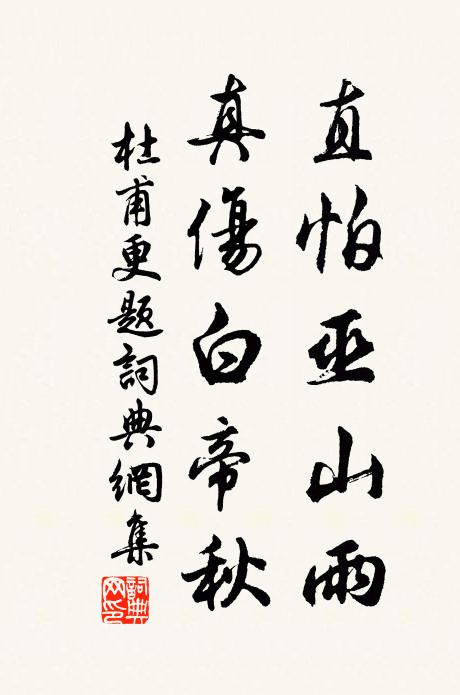 直怕巫山雨
真傷白帝秋
杜甫更題詞典網集
詞典網印